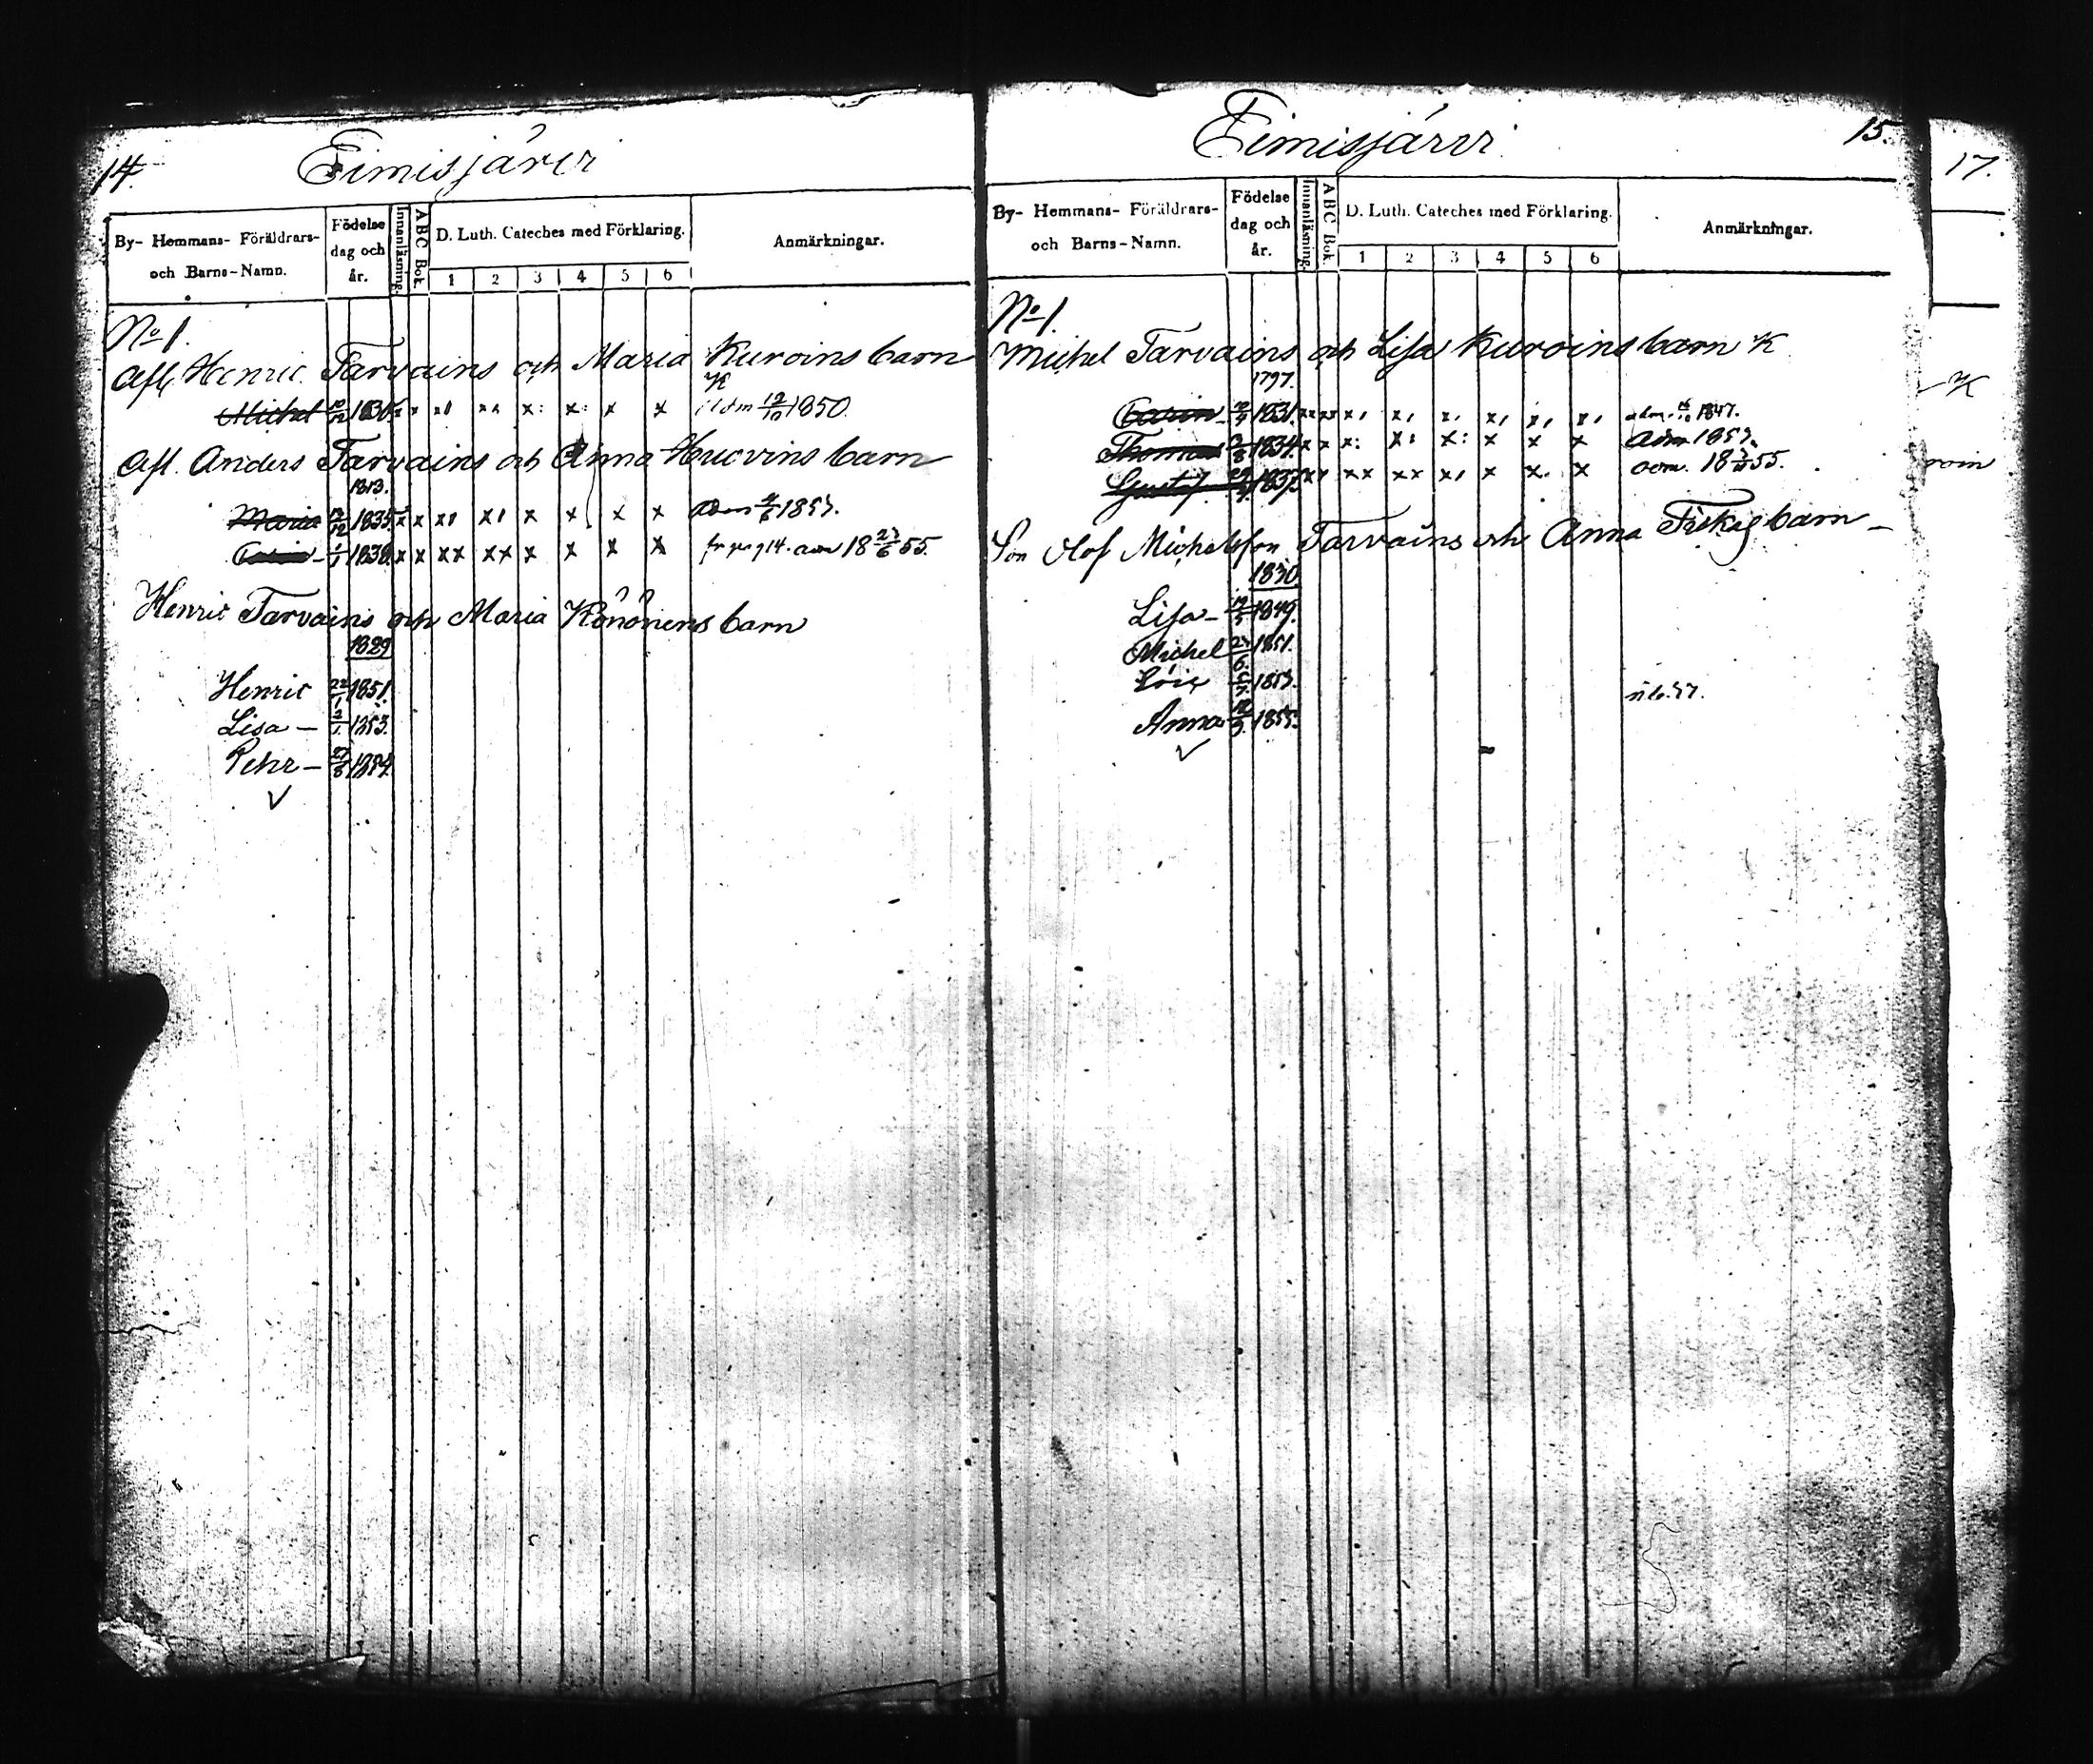 14.
Eimisjärvi
By- Hemmans- Föräldrars- och Barns-Namn.
Födelse dag och år.
Innanläsning.
ABC Bok.
D. Luth. Cateches med Förklaring.
1 2 3 4 5 6
Anmärkningar.
No 1.
Afl. Henric Tarvains och Maria Kuroins barn
K
Michel 1830 x x x x x x x x adm 12/10 1850.
Afl. Anders Tarvains och Anna Huovins barn
1813.
Maria 12/12 1835 x x x x x x x x adm 1853.
1/1 1838 x x xx xx x x x x fr pag 14. adm 18 23/6 55.
Henric Tarvains och Maria Könönens barn
1829
Henric 22/1 1851.
Lisa - 2/1 1853.
Pehr - 27/8 1854.
15.
Eimisjärvi
By- Hemmans- Föräldrars- och Barns-Namn.
Födelse dag och år.
Innanläsning.
ABC Bok.
D. Luth. Cateches med Förklaring.
1 2 3 4 5 6
Anmärkningar.
No 1.
Michel Tarvains och Lisa Kuroins barn K
1797.
Carin 1831. x x x x x x adm. 1847.
Thomas 1834. x x x: x: x: x x x adm 1853.
Gustaf 1837. x x xx xx x x x x adm. 18 55.
Son Olof Michelsson Tarvains och Anna Fiskas barn -
1830
Lisa - 1849.
Michel 23/6 1851.
1853.
Anna 1855.
17.
K
roin